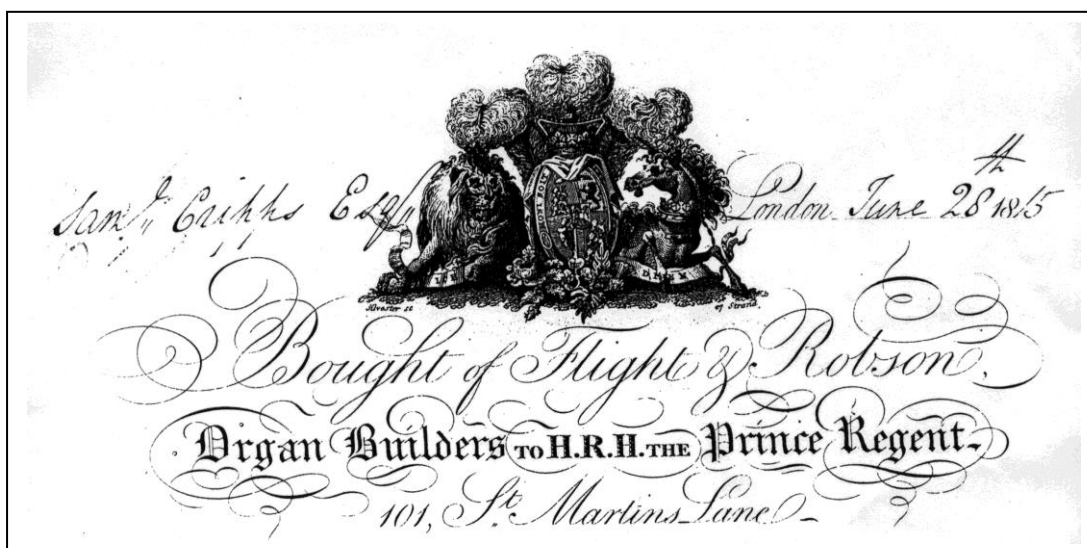 Saml Cripps Esqr London June 28th 1815
Bought of Flight & Robson,
Organ Builders TO H.R.H. THE Prince Regent.
101, St. Martins Lane